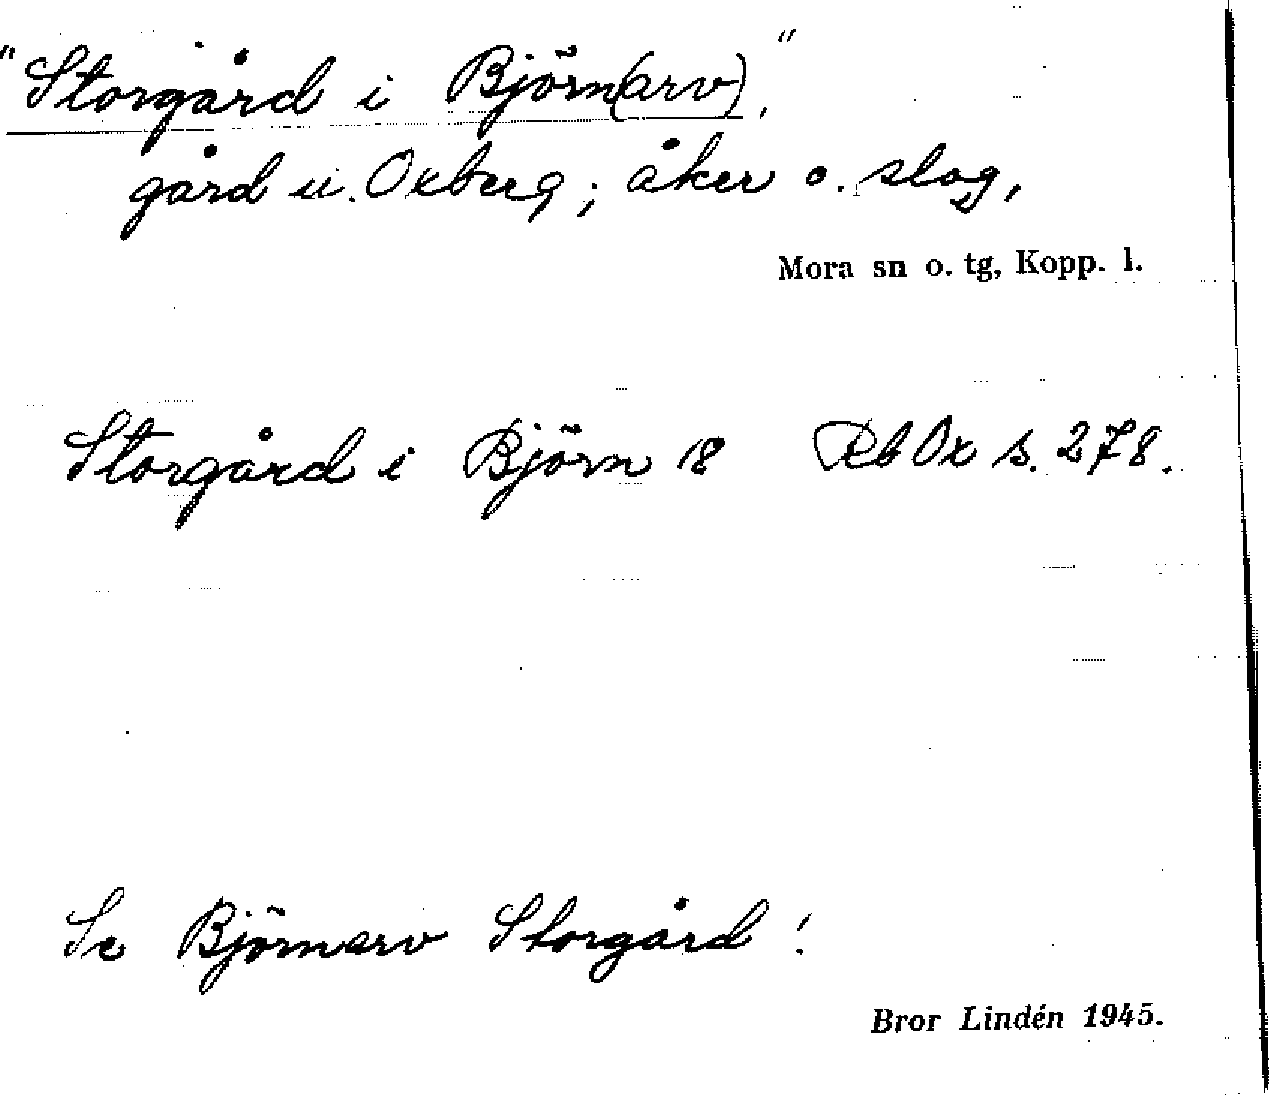 "Storgård i Björn(arv),"
gård u. Oxberg; åker o. slog,
Mora sn o. tg, Kopp. l.
Storgård i Björn 18 Rb Ox s. 278.
Se Björnarv Storgård!
Bror Lindén 1945.